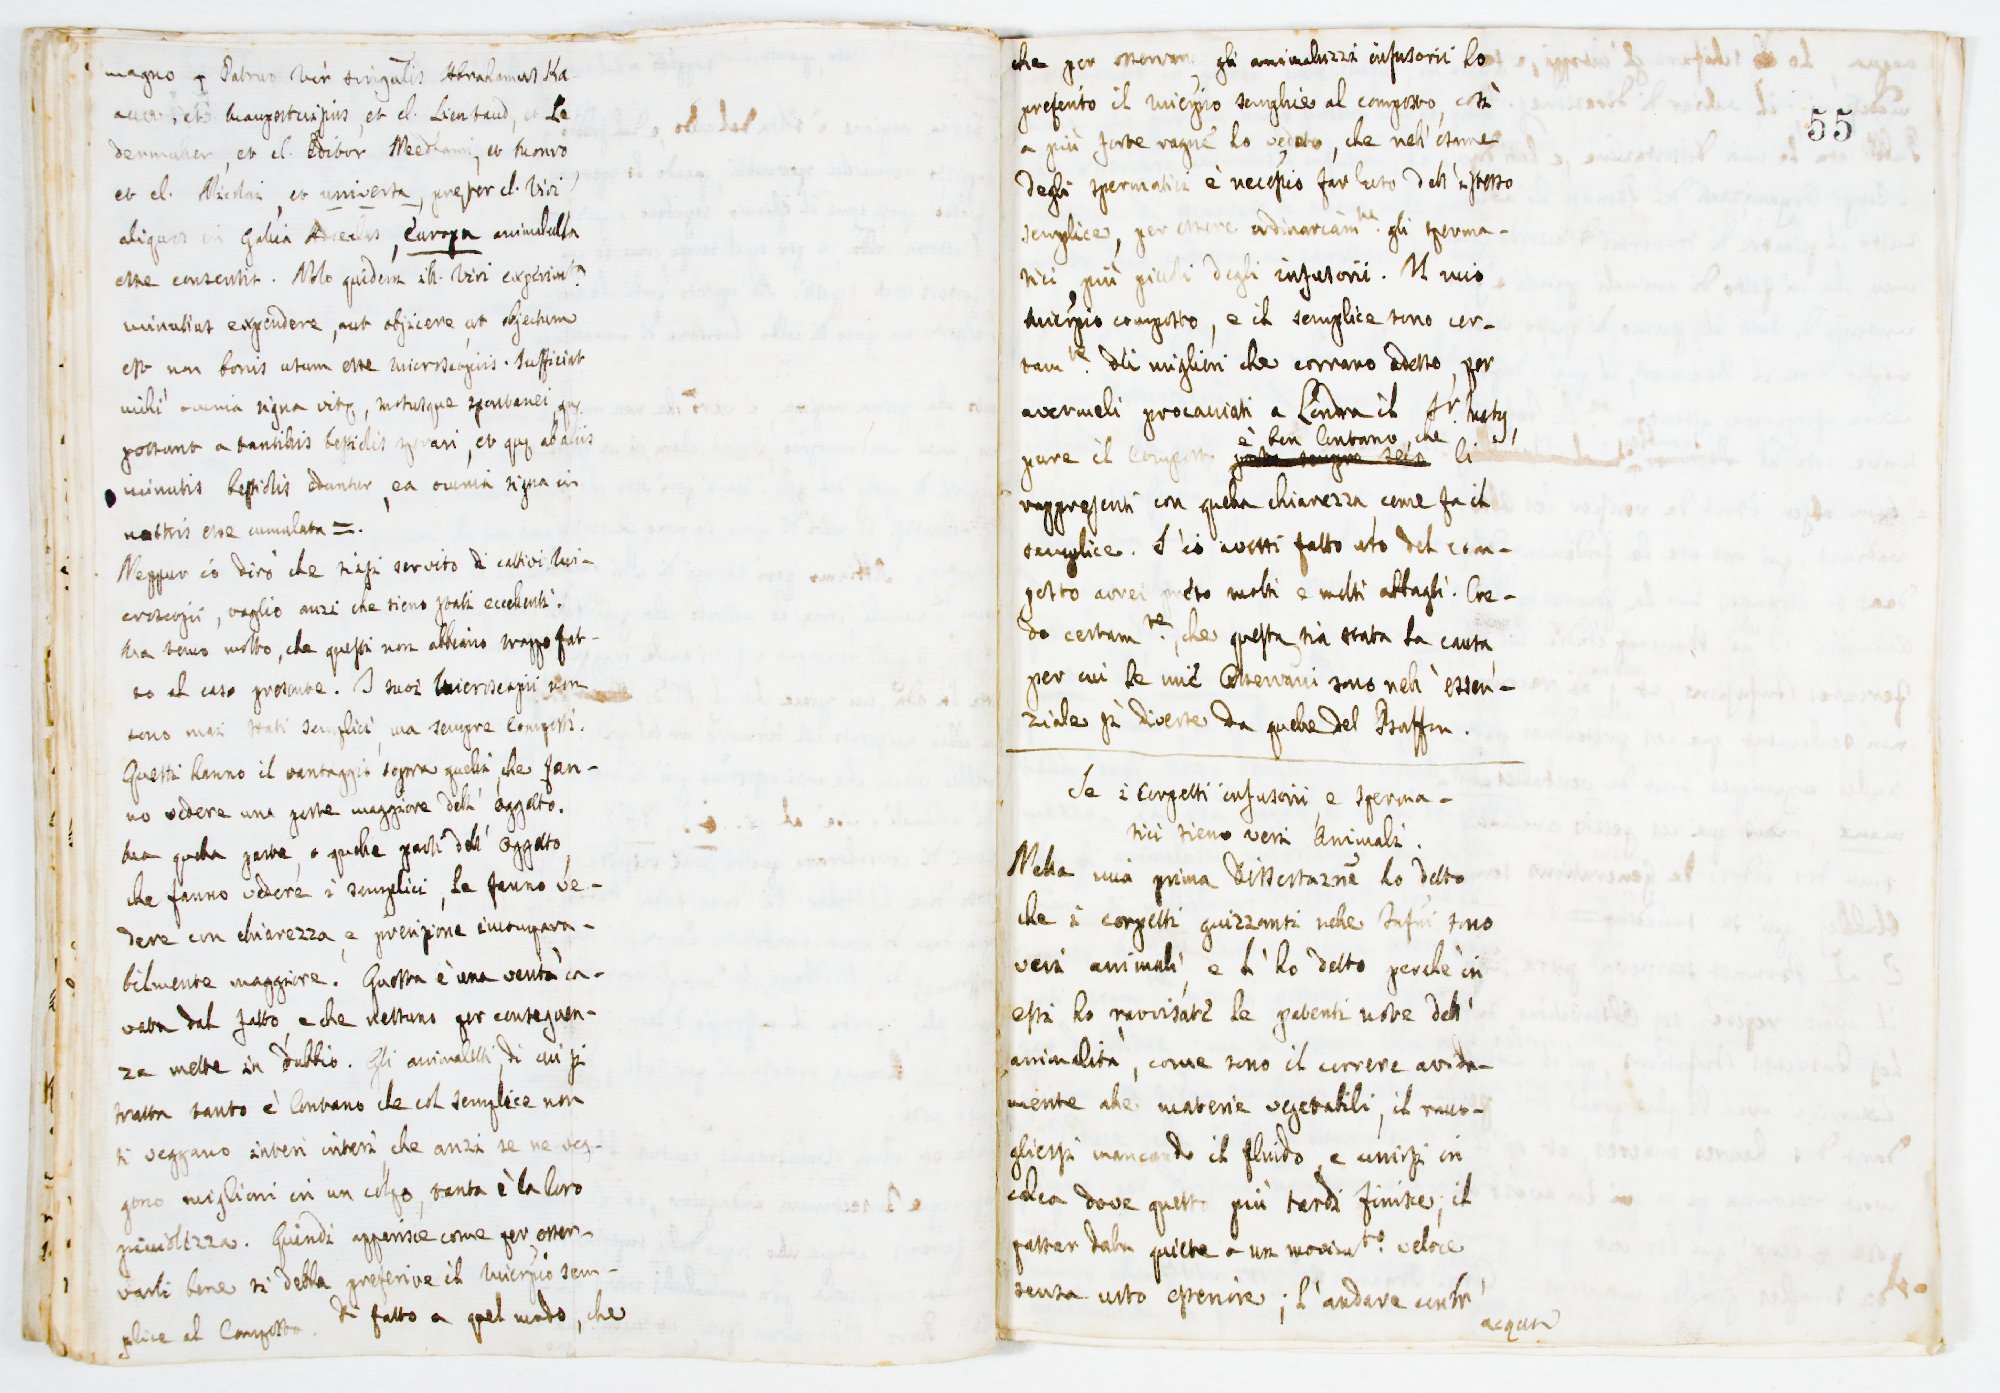 magno Patruo vir singularis Abrahamus Ka-
auu, et Maupertuisius, et cl. Lieutaud, et Le
denmuller, et cl. Editor Needhami, et
et cl. Nicolai, et universa, præter cl. Viri
aliquos in Galliâ Asseclas, Europa animalcula
esse consentit. Nolo quidem ill. Viri experim.ta
minutius expendere, aut objicere, ut objectum
est non bonis usum esse microscopiis. Sufficiat
mihi omnia signa vitę, motusque spontanei, quę
possunt a tantillis bestiolis sperari, et quę ab aliis
minutis bestiolis eduntur, ea omnia signa in
nostris esse cumulata =.
Neppur io dirò che siasi servito di cattivi Mi-
croscopii, voglio anzi che sieno stati eccellenti.
Ma temo molto, che questi non abbiano troppo fat-
to al caso presente. I suoi Microscopii non
sono mai stati semplici, ma sempre Composti.
Questi hanno il vantaggio sopra quelli, che fan-
no vedere una parte maggiore dell' oggetto.
Ma quella parte, o quelle parti dell' oggetto,
che fanno vedere i semplici, le fanno ve-
dere con chiarezza, e precisione incompara-
bilmente maggiore. Questa è una verità ca-
vata dal fatto, e che nessuno per conseguen-
za mette in dubbio. Gli animaletti, di cui si
tratta tanto è lontano che col semplice non
si veggano interi interi, che anzi se ne veg-
gono migliori in un colpo, tanta è la loro
picciolezza. Quindi apparisce come per osser-
varli bene si debba preferire il Micrpio sem-
plice al Composto. Di fatto a quel modo, che
che per osservare gli animaluzzi infusorii ho
preferito il Micrpio semplice al composto, così
a più forte ragne ho veduto, che nell' esame
degli spermatici è necessio far uso dell' istesso
semplice, per essere ordinariam.te gli sperma-
tici più piccoli degli infusorii. Il mio
Micrpio composto, e il semplice sono cer-
tam.te dei migliori che corrano adesso, per
avermeli procacciati a Londra il Sr.
pure il Composto è ben lontano, che li
rappresenti con quella chiarezza come fa il
semplice. S' io avessi fatto uso del com-
posto avrei preso molti e molti abbagli. Cre-
do certam.te, che questa sia stata la causa
per cui le mie Osservani sono nell' essen-
ziale sì diverse da quelle del Buffon.
Se i Corpetti infusorii, e sperma-
tici sieno veri Animali.
Nella mia prima Dissertazne ho detto
che i corpetti guizzanti nelle Infusi sono
veri animali, e l' ho detto perchè in
essi ho ravvisate le patenti note dell'
animalità, come sono il correre avida-
mente alle materie vegetabili, il racco-
gliersi mancando il fluido, e unirsi in
colea dove questo più tardi finisce; il
passar dalla quiete a un movim.to veloce
senza urto esteriore; l' andare contr'
acqua
55